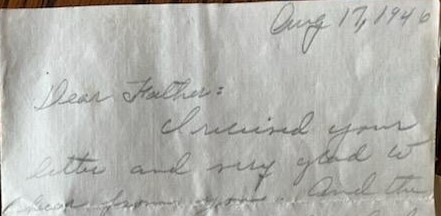 Aug 17, 1946
Dear Father:
I recieved your
letter and very glad to
hear from you. And the